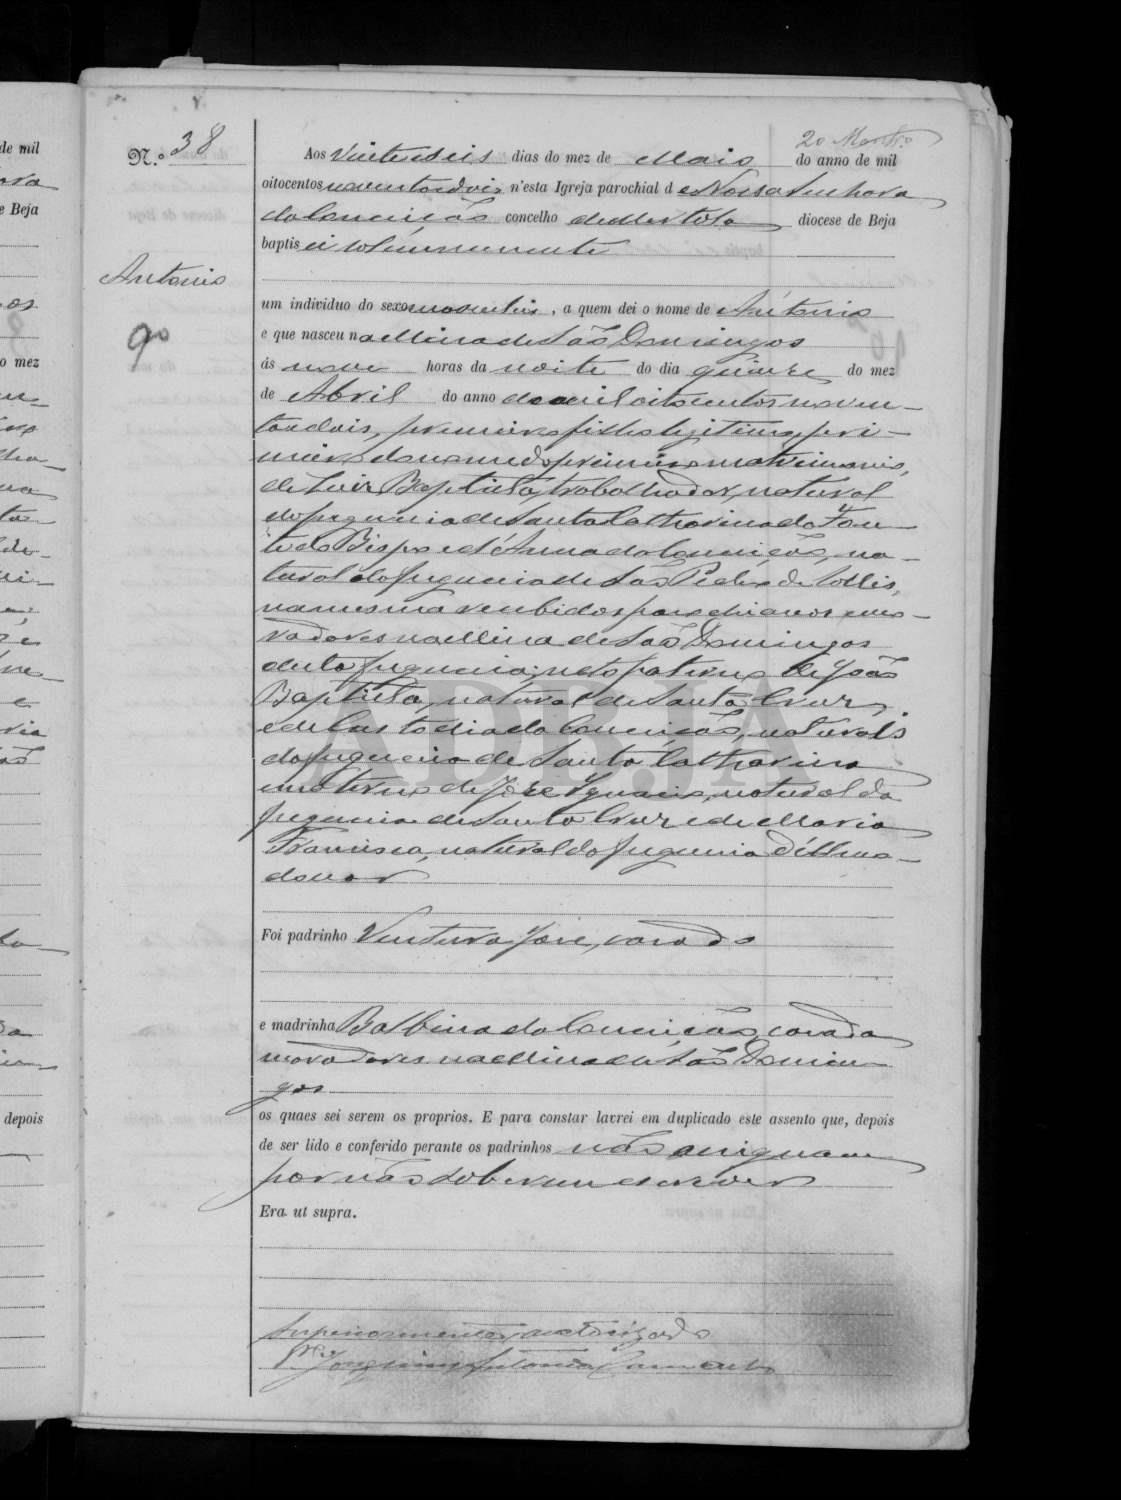 N.º 38
20 Março
Aos vinte e seis dias do mez de Maio do anno de mil
oitocentos noventa e dois n'esta Igreja parochial de Nossa Senhora
da Conceição concelho de Mertola diocese de Beja
baptisei solemnemente
Antonio
um individuo do sexo masculino, a quem dei o nome de Antonio
e que nasceu na Mina de São Domingos
9º
ás nove horas da noite do dia quinze do mez
de Abril do anno de mil oitocentos noven-
ta e dois, primeiro filho legitimo, pri-
meiro do nome do primeiro matrimonio,
de Luiz Baptista, trabalhador, natural
da freguezia de Santa Catharina da Fon-
te do Bispo e d'Anna da Conceição, na-
tural da freguezia de São Pedro de Sollis,
na mesma recebidos parochianos e mo-
radores na Mina de São Domingos
desta freguezia; neto paterno de João
Baptista, natural de Santa Cruz,
e de Custodia da Conceição, natural
da freguezia de Santa Catharina
e materno de José Ignacio, natural da
freguezia de Santa Cruz e de Maria
Francisca, natural da freguezia d'Almo-
dovar
Foi padrinho Ventura José, casado
e madrinha Balbina da Conceição, casada
moradores na Mina de São Domin-
gos
os quaes sei serem os proprios. E para constar lavrei em duplicado este assento que, depois
de ser lido e conferido perante os padrinhos não assignaram
por não saberem escrever
Era ut supra.
Superiormente auctorizado
P.e Joaquim Antonio
ADBJA